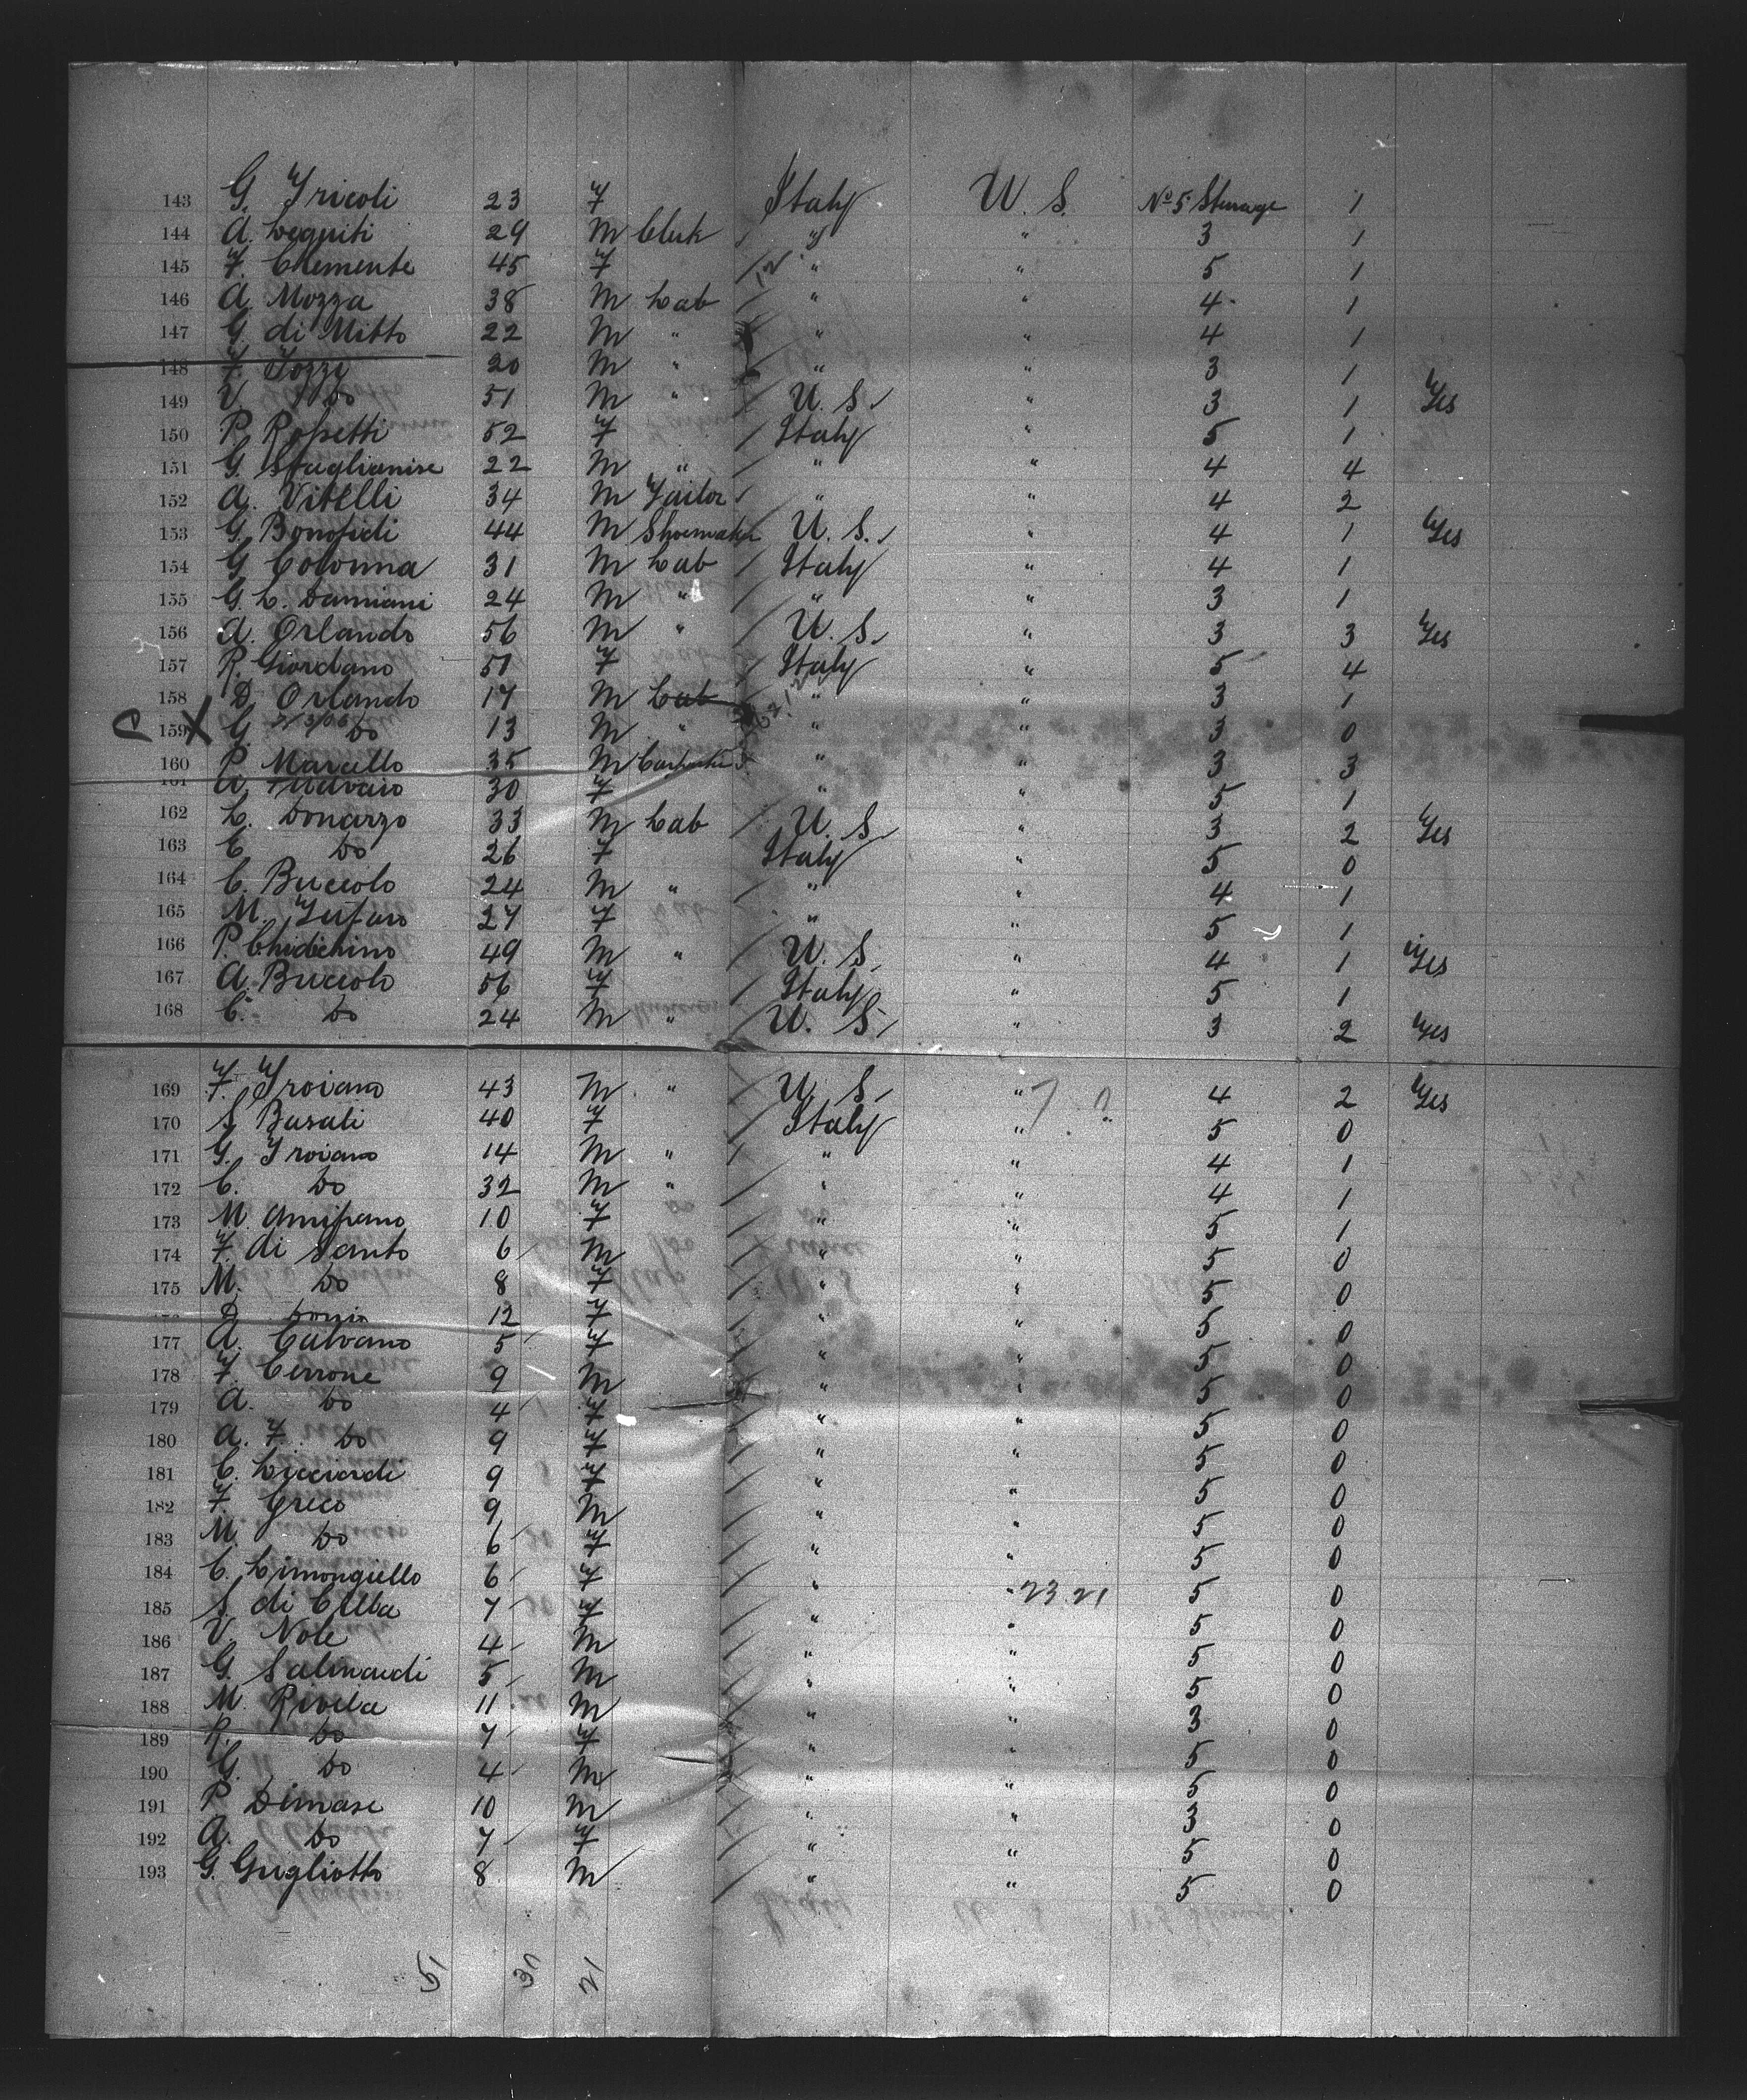 143 G. Tricoli 23 F Italy U. S. No 5 Steerage 1
144 A. Leguiti 29 M Clerk " " 3 1
145 F. Clemente 45 F " " 5 1
146 A. Mozza 38 M Lab " " 4 1
147 G. di Mitto 22 M " " " 4 1
148 F. Tozzi 20 M " " " 3 1
149 V. Do 51 M " U. S. " 3 1 Yes
150 P. Rosetti 52 F Italy " 5 1
151 G. Staglianise 22 M " " " 4 4
152 A. Vitelli 34 M Tailor " " 4 2
153 G. Bonofidi 44 M Shoemaker U. S. " 4 1 Yes
154 G. Colonna 31 M Lab Italy " 4 1
155 G. L. Damiani 24 M " " " 3 1
156 A. Orlando 56 M " U. S. " 3 3 Yes
157 R. Giordano 51 F Italy " 5 4
158 D. Orlando 17 M Lab " " 3 1
159 X G. Do 13 M " " " 3 0
160 P. Marcello 35 M Carpenter " " 3 3
161 30 F " " 5 1
162 L. Donarzo 33 M Lab U. S. " 3 2 Yes
163 C Do 26 F Italy " 5 0
164 C. Bucciolo 24 M " " " 4 1
165 M. 27 F " " 5 1
166 P. Chidichino 49 M " U. S. " 4 1 Yes
167 A. Bucciolo 56 F Italy " 5 1
168 C. Do 24 M " U. S. " 3 2 Yes
169 F. Troiano 43 M " U. S. " 4 2 Yes
170 S. Basali 40 F Italy " 5 0
171 G. Troiano 14 M " " " 4 1
172 C. Do 32 M " " " 4 1
173 M. 10 F " " 5 1
174 F. di Santo 6 M " " 5 0
175 M. Do 8 F " " 5 0
D. 12 F " 5 0
177 A. Calvano 5 F " " 5 0
178 F. Cerrone 9 M " " 5 0
179 A. Do 4 F " " 5 0
180 A. F. Do 9 F " " 5 0
181 C. Licciardi 9 F " " 5 0
182 F. Greco 9 M " " 5 0
183 M. Do 6 F " " 5 0
184 C. Limongiello 6 F " " 5 0
185 S. di Cella 7 F " 23.21 5 0
186 V. Nole 4 M " " 5 0
187 G. Salinardi 5 M " " 5 0
188 M. Rivela 11 M " " 3 0
189 R. Do 7 F " " 5 0
190 G. Do 4 M " " 5 0
191 P. Dimase 10 M " " 3 0
192 A. Do 7 F " " 5 0
193 G. Gugliotto 8 M " " 5 0
51 30 21